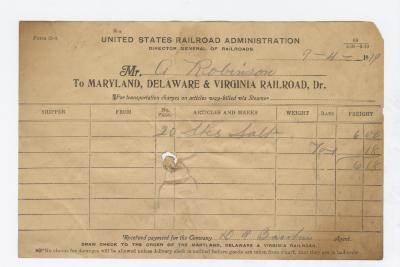 UNITED STATES RAILROAD ADMINISTRATION
DIRECTOR GENERAL OF RAILROADS
9-4-1919
Mr. A Robinson
To MARYLAND, DELAWARE & VIRGINIA RAILROAD, Dr.
For transportation charges on articles way-billed via Steamer
SHIPPER FROM No. PKGS. ARTICLES AND MARKS WEIGHT RATE FREIGHT
20 Sks Salt 6 00
18
6 18
Received payment for the Company Agent.
DRAW CHECK TO THE ORDER OF THE MARYLAND, DELAWARE & VIRGINIA RAILROAD.
No claims for damages will be considered unless delivery clerk is notified before goods are taken from wharf, that they are in bad order